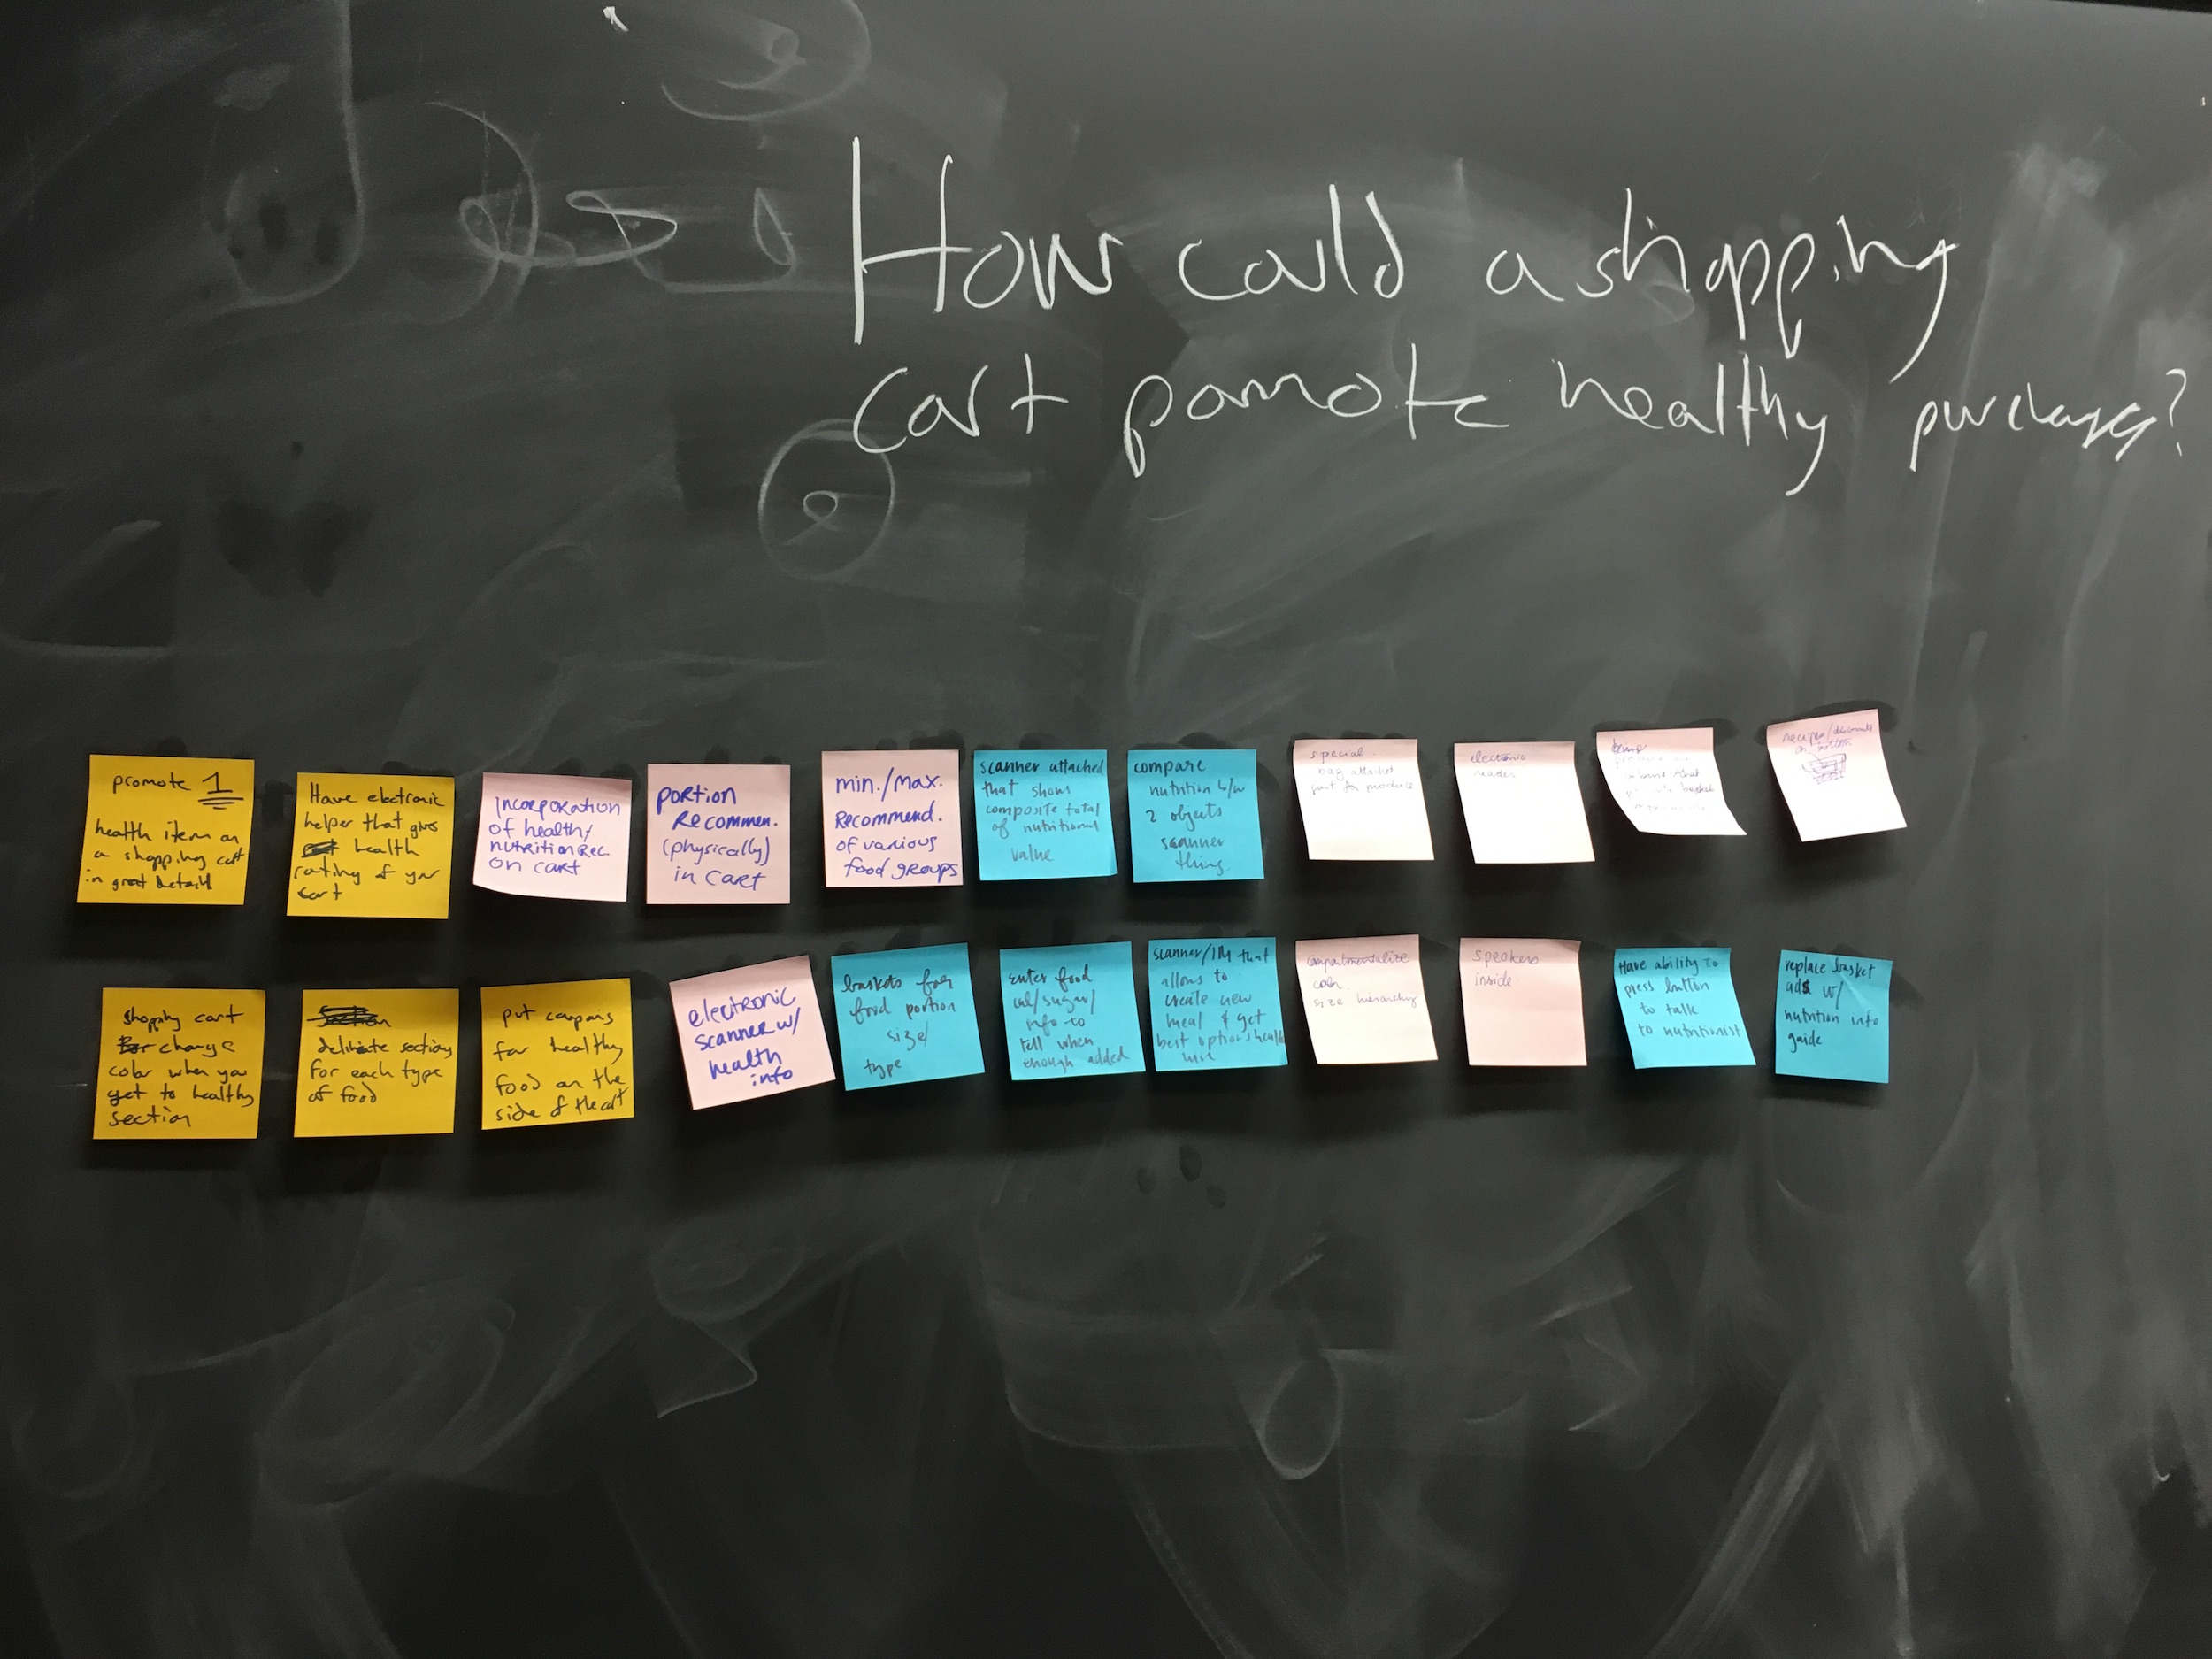 How could a shopping
cart pomote healthy
promote 1
health item on
a shopping cart
in great detail
Have electronic
helper that gives
health
rating of your
cart
Incorporation
of health/
nutrition Rec.
on cart
portion
Recommen.
(physically)
in cart
min./max.
Recommend.
of various
food groups
scanner attached
that shows
composite total
of nutritional
value
compare
nutrition b/w
2 objects
scanner
thing
special
bag attached
just for produce
electronic
reader
recipes/discounts
on
shopping cart
change
color when you
get to healthy
section
sections
for each type
of food
put coupons
for healthy
food on the
side of the cart
electronic
scanner w/
health
info
baskets for
food portion
size/
type
enter food
cal/sugar/
info to
tell when
enough added
scanner/ that
allows to
create new
meal & get
best options
compartmentalize
size hierarchy
speakers
inside
Have ability to
press button
to talk
to nutritionist
replace basket
ads w/
nutrition info
guide